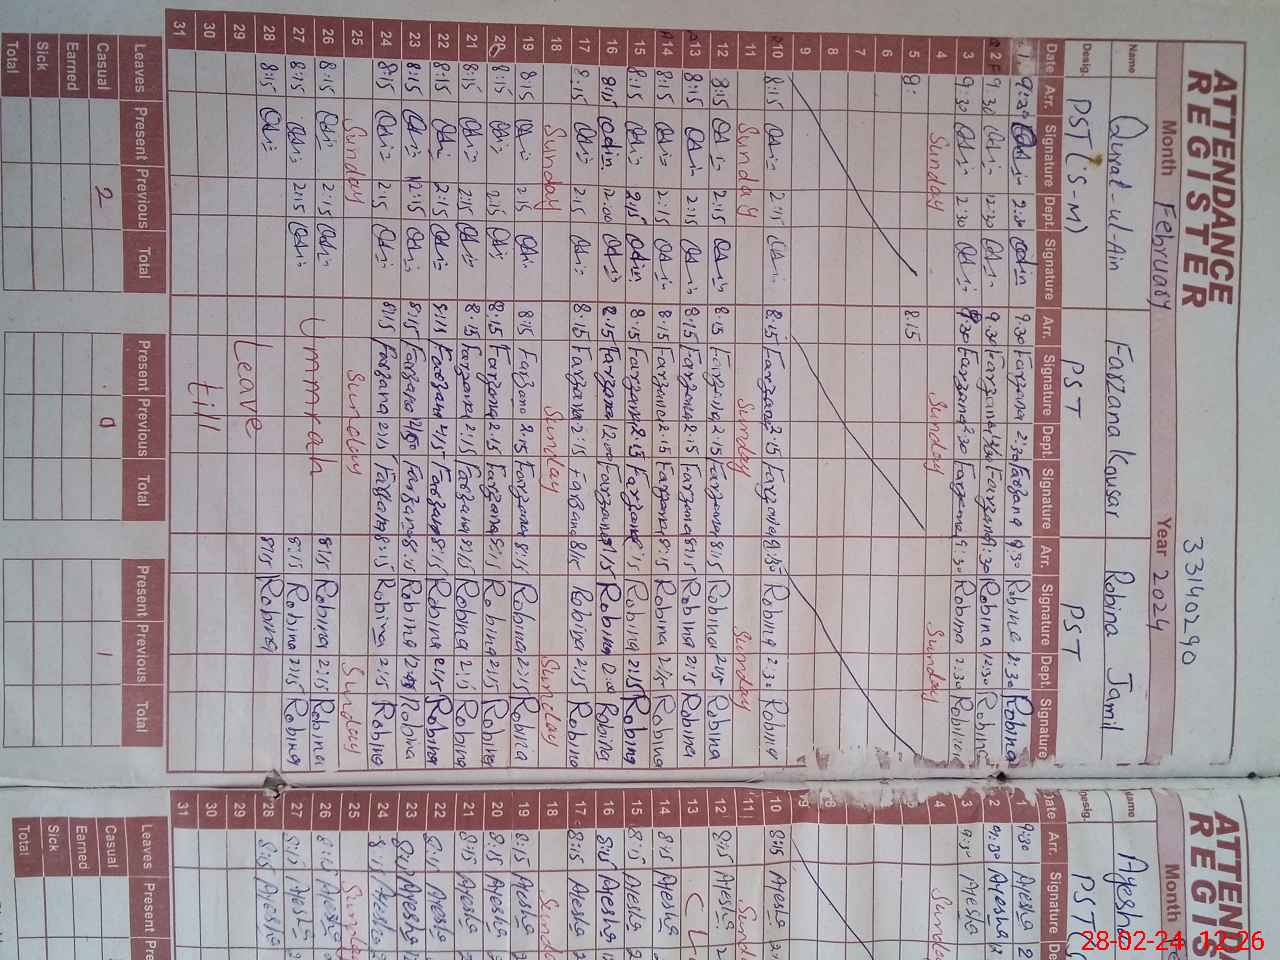 33140290
ATTENDANCE
REGISTER
Month February Year 2024
Name Qurat-ul-Ain Farzana Kousar Robina Jamil
Desig. PST (S-M) PST PST
Date Arr. Signature Dept. Signature Arr. Signature Dept. Signature Arr. Signature Dept. Signature
1 9:30 2:30 9:30 Farzana 2:30 Farzana 9:30 Robina 2:30 Robina
2 9:30 12:30 9:30 Farzana 12:30 Farzana 9:30 Robina 12:30 Robina
3 9:30 2:30 9:30 Farzana 2:30 Farzana 9:30 Robina 2:30 Robina
4 Sunday Sunday Sunday
5 8: 8:15
6
7
8
9
10 8:15 2:15 8:15 Farzana 2:15 Farzana Robina 2:30 Robina
11 Sunday Sunday Sunday
12 8:15 2:15 8:15 Farzana 2:15 Farzana 8:15 Robina 2:15 Robina
13 8:15 2:15 8:15 Farzana 2:15 Farzana 8:15 Robina 2:15 Robina
14 8:15 2:15 8:15 Farzana 2:15 Farzana 8:15 Robina 2:15 Robina
15 8:15 2:15 8:15 Farzana 2:15 Farzana 8:15 Robina 2:15 Robina
16 8:15 12:00 8:15 Farzana 12:00 Farzana 8:15 Robina 12:00 Robina
17 8:15 2:15 8:15 Farzana 2:15 Farzana 8:15 Robina 2:15 Robina
18 Sunday Sunday Sunday
19 8:15 2:15 8:15 Farzana 2:15 Farzana 8:15 Robina 2:15 Robina
20 8:15 2:15 8:15 Farzana 2:15 Farzana 8:15 Robina 2:15 Robina
21 8:15 2:15 8:15 Farzana 2:15 Farzana 8:15 Robina 2:15 Robina
22 8:15 2:15 8:15 Farzana Farzana 8:15 Robina 2:15 Robina
23 8:15 12:15 8:15 Farzana Farzana 8:15 Robina Robina
24 8:15 2:15 8:15 Farzana 2:15 Farzana 8:15 Robina 2:15 Robina
25 Sunday Sunday Sunday
26 8:15 2:15 8:15 Robina 2:15 Robina
27 8:15 2:15 Ummrah 8:15 Robina 2:15 Robina
28 8:15 8:15 Robina
29 Leave
30 till
31
Leaves Present Previous Total Present Previous Total Present Previous Total
Casual 2 0 1
Earned
Sick
Total
ATTEN
REGIS
Month
Name Ayesha
Desig. PST
Date Arr. Signature
1 9:30 Ayesha
2 9:30 Ayesha
3 9:30 Ayesha
4 Sunday
9
10 8:15 Ayesha
11 Sund
12 8:15 Ayesha
13 C L
14 8:15 Ayesha
15 8:15 Ayesha
16 8:15 Ayesha
17 8:15 Ayesha
18 Sund
19 8:15 Ayesha
20 8:15 Ayesha
21 8:15 Ayesha
22 8:15 Ayesha
23 8:15 Ayesha
24 8:15 Ayesha
25 Sunday
26 8:15 Ayesha
27 8:15 Ayesha
28 8:15 Ayesha
29
30
31
Leaves Present Pre
Casual
Earned
Sick
Total
28-02-24 12:26